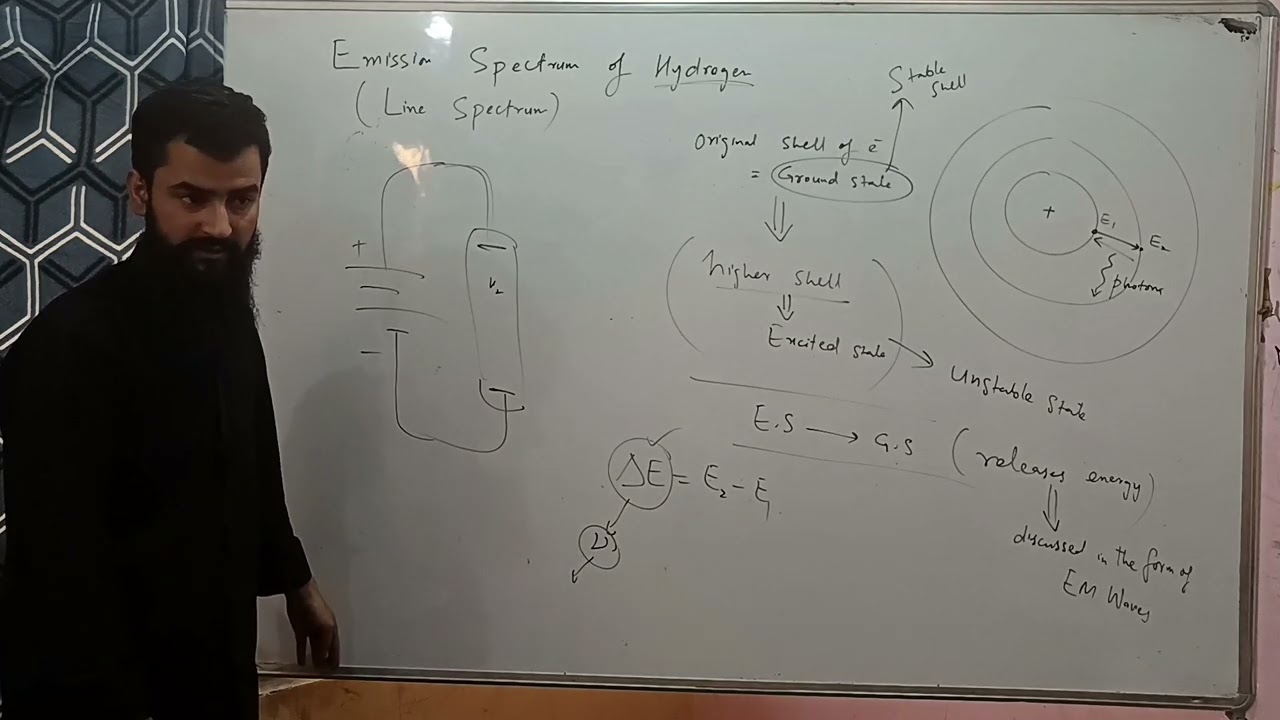 Emission Spectrum of Hydrogen
(Line Spectrum)
Stable
shell
original shell of e⁻
= Ground state
higher shell
Excited state
Unstable state
E.S → G.S (releases energy)
discussed in the form of
EM Waves
ΔE = E₂ - E₁
+
-
+
E₁
E₂
photons